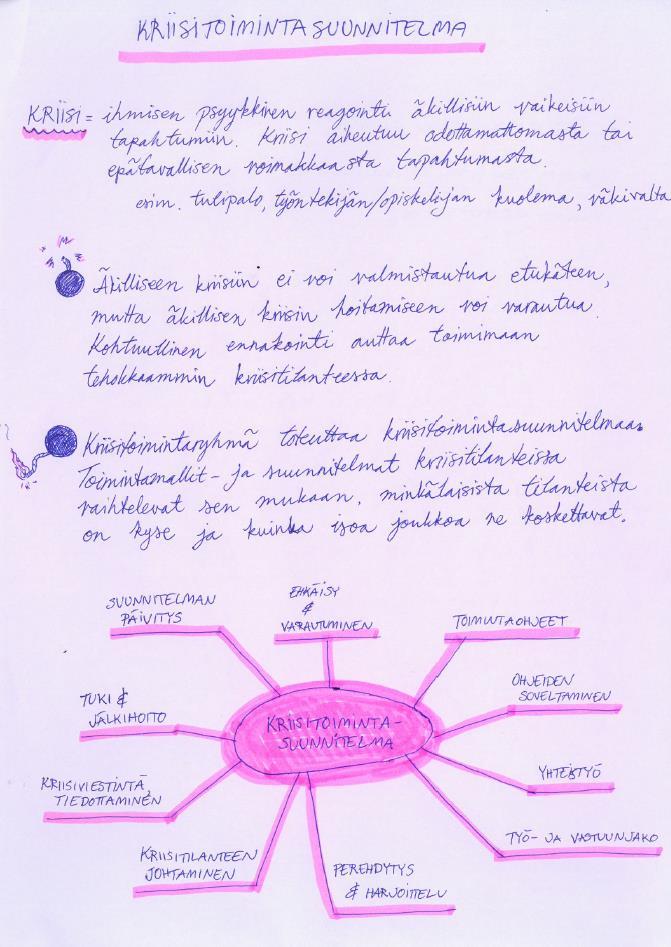 KRIISITOIMINTASUUNNITELMA
KRIISI = ihmisen psyykkinen reagointi äkillisiin vaikeisiin
tapahtumiin. Kriisi aiheutuu odottamattomasta tai
epätavallisen voimakkaasta tapahtumasta.
esim. tulipalo, työntekijän/opiskelijan kuolema, väkivalta
Äkilliseen kriisiin ei voi valmistautua etukäteen,
mutta äkillisen kriisin hoitamiseen voi varautua.
Kohtuullinen ennakointi auttaa toimimaan
tehokkaammin kriisitilanteessa.
Kriisitoimintaryhmä toteuttaa kriisitoimintasuunnitelmaa.
Toimintamallit- ja suunnitelmat kriisitilanteissa
vaihtelevat sen mukaan, minkälaisista tilanteista
on kyse ja kuinka isoa joukkoa ne koskettavat.
SUUNNITELMAN
PÄIVITYS
EHKÄISY
&
VARAUTUMINEN
TOIMINTAOHJEET
TUKI &
JÄLKIHOITO
KRIISITOIMINTA-
SUUNNITELMA
OHJEIDEN
SOVELTAMINEN
KRIISIVIESTINTÄ,
TIEDOTTAMINEN
YHTEISTYÖ
KRIISITILANTEEN
JOHTAMINEN
PEREHDYTYS
& HARJOITTELU
TYÖ- JA VASTUUNJAKO